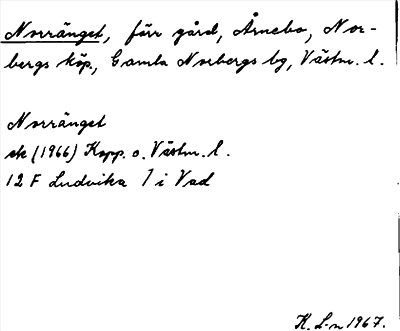 Norränget, förr gård, Årnebo, Nor-
bergs köp., Gamla Norbergs bg, Västm. l.
Norränget
ek (1966) Kopp. o. Västm. l.
12 F Ludvika 7 i Vad
K. L-n 1967.